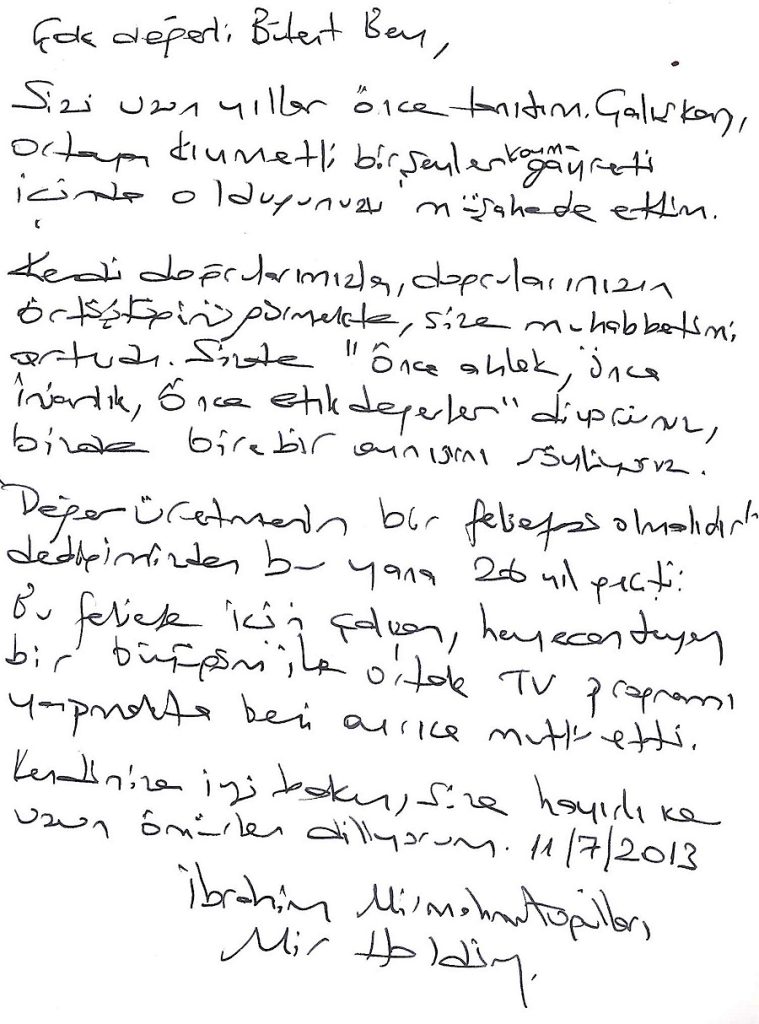 Çok değerli Bülent Bey,
Sizi uzun yıllar önce tanıdım. Çalışkan,
ortaya kıymetli birşeyler koyma gayreti
içinde olduğunuzu müşahede ettim.
Kendi doğrularımızla, doğrularınızın
örtüştüğünü görmekte, size muhabbetimi
artırdı. Sizde "Önce ahlak, önce
insanlık, Önce etik değerler" diyorsunuz,
bizde birebir aynısını söylüyoruz.
Değer üretmenin bir felsefesi olmalıdır
dediğimizden bu yana 26 yıl geçti.
Bu felsefe için çalışan, heyecan duyan
bir büyüğüm ile ortak TV programı
yapmakta beni ayrıca mutlu etti.
Kendinize iyi bakın, size hayırlı ve
uzun ömürler diliyorum. 11/7/2013
İbrahim Mirmahmutoğulları
Mir Holding.